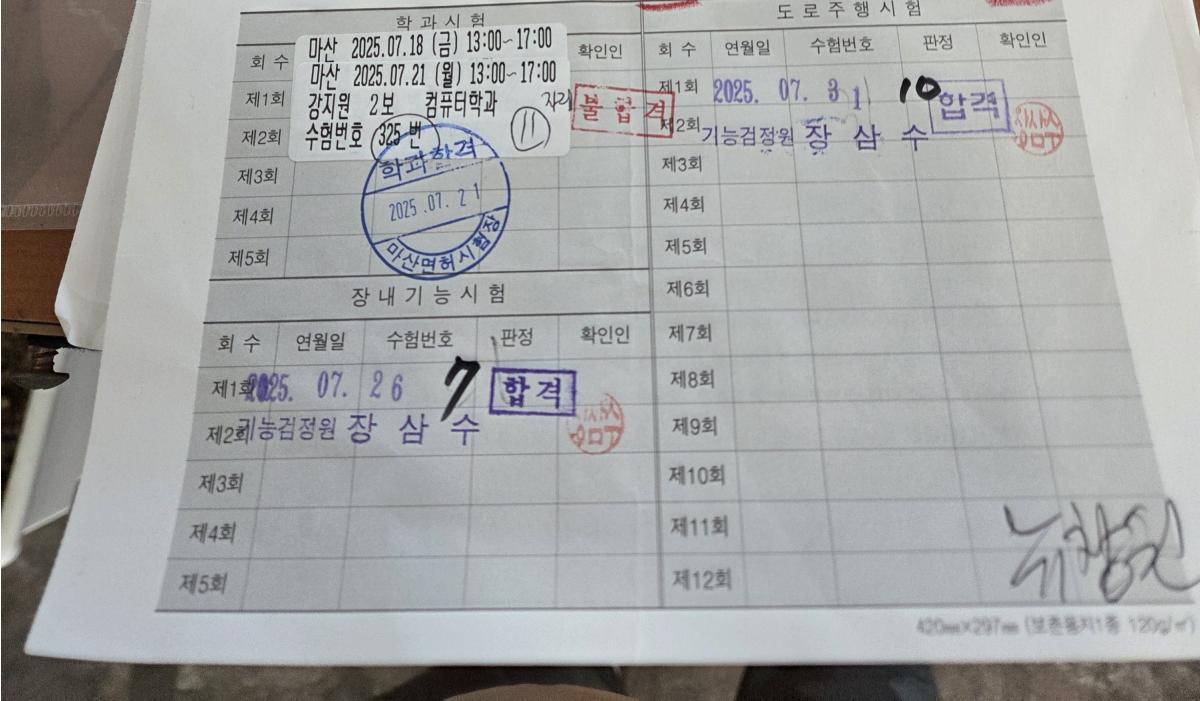 학과시험
회 수
마산 2025.07.18 (금) 13:00~17:00
확인인
마산 2025.07.21 (월) 13:00~17:00
제1회
강지원 2보 컴퓨터학과
불합격
제2회
수험번호 325 번
11
제3회
학과합격
2025.07.21
마산면허시험장
제4회
제5회
장내기능시험
회 수 연월일 수험번호 판정 확인인
제1회 2025. 07. 26 7 합격
제2회 기능검정원 장 삼 수
제3회
제4회
제5회
도로주행시험
회 수 연월일 수험번호 판정 확인인
제1회 2025. 07. 31 10 합격
제2회 기능검정원 장 삼 수
제3회
제4회
제5회
제6회
제7회
제8회
제9회
제10회
제11회
제12회
420㎜×297㎜ (보존용지1종 120g/㎡)